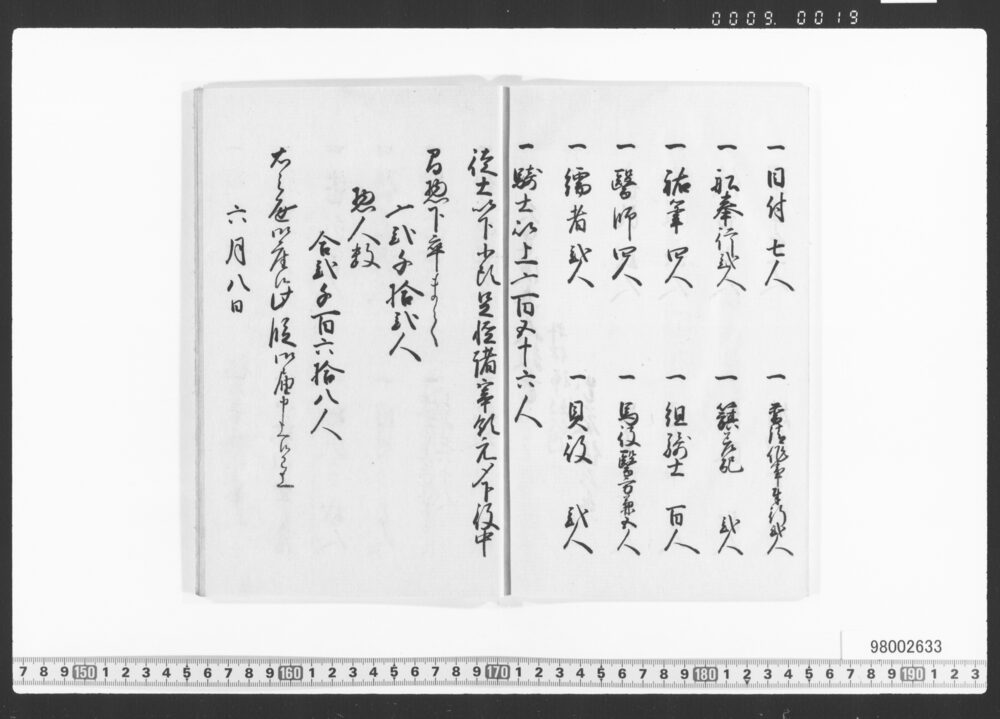 0009.0019
一目付 七人
一普請作事奉行弐人
一船奉行弐人
一旗差配 弐人
一祐筆 四人
一組騎士 百人
一醫師 四人
一馬役醫方兼五人
一儒者 弐人
一貝役 弐人
一騎士以上二百五十六人
徒士以下小頭足軽諸宰領元〆下役中
間惣下卒まて
一弐千拾弐人
惣人数
合弐千百六拾八人
右之通御座候
六月八日
98002633
7 8 9 150 1 2 3 4 5 6 7 8 9 160 1 2 3 4 5 6 7 8 9 170 1 2 3 4 5 6 7 8 9 180 1 2 3 4 5 6 7 8 9 190 1 2 3